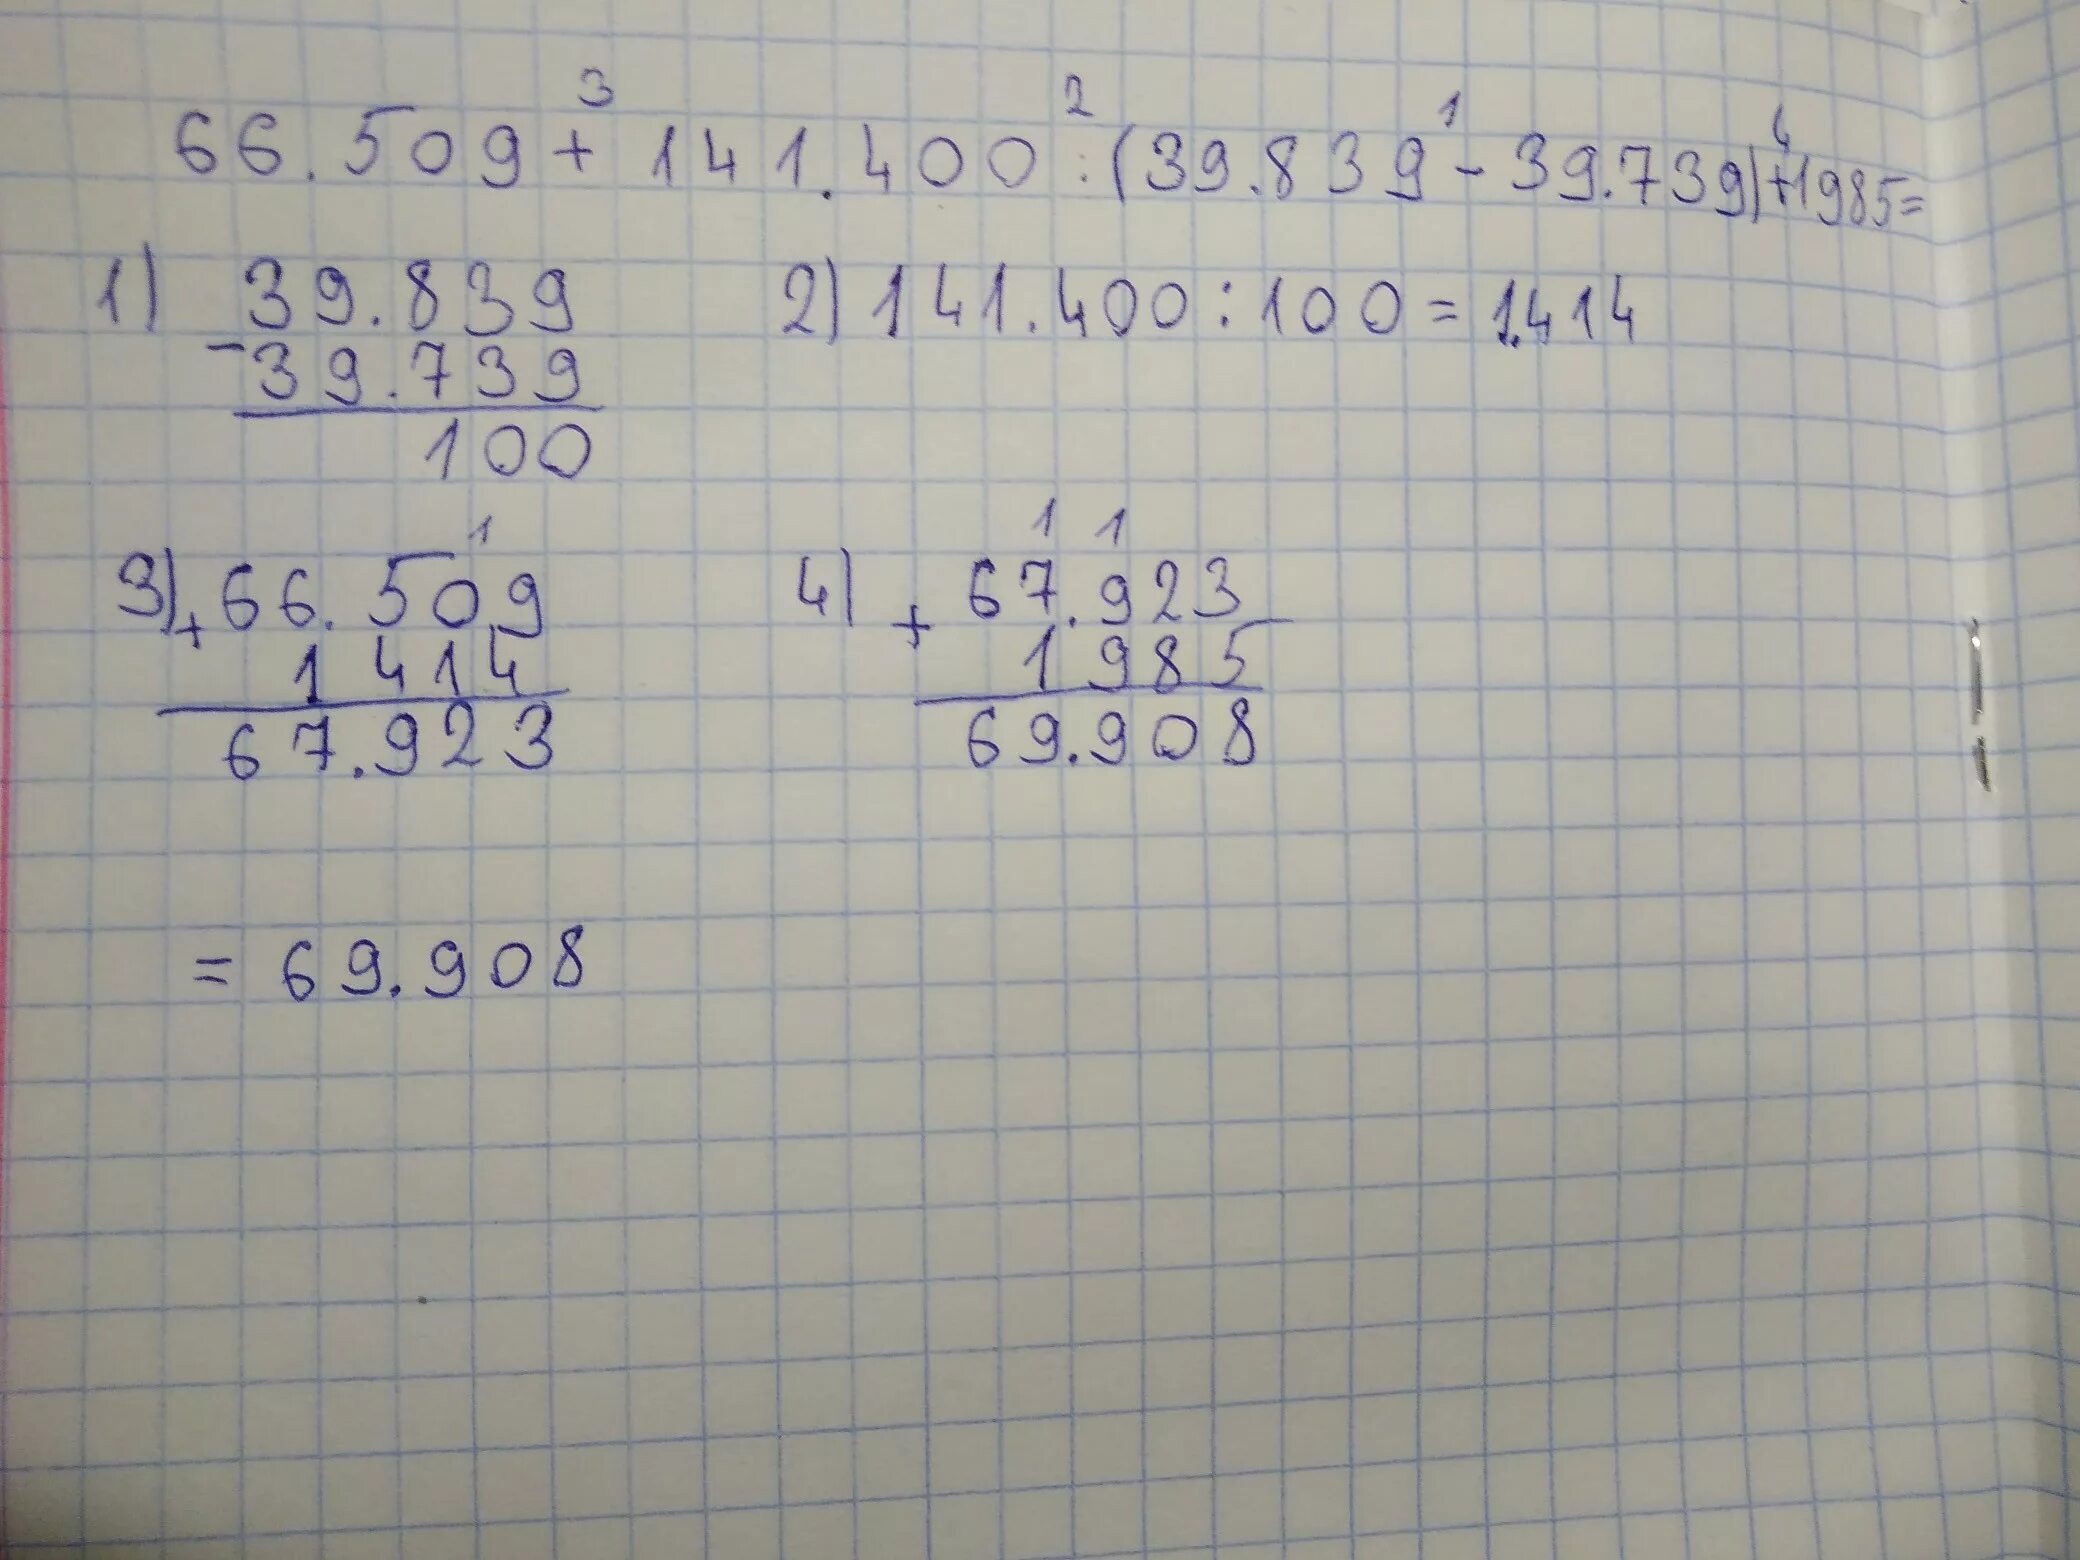 3 2 1 4
66.509 + 141.400 : (39.839 - 39.739) + 1985 =
1) 39.839
- 39.739
100
2) 141.400 : 100 = 1.414
1
3) + 66.509
1.414
67.923
1 1
4) + 67.923
1985
69.908
= 69.908